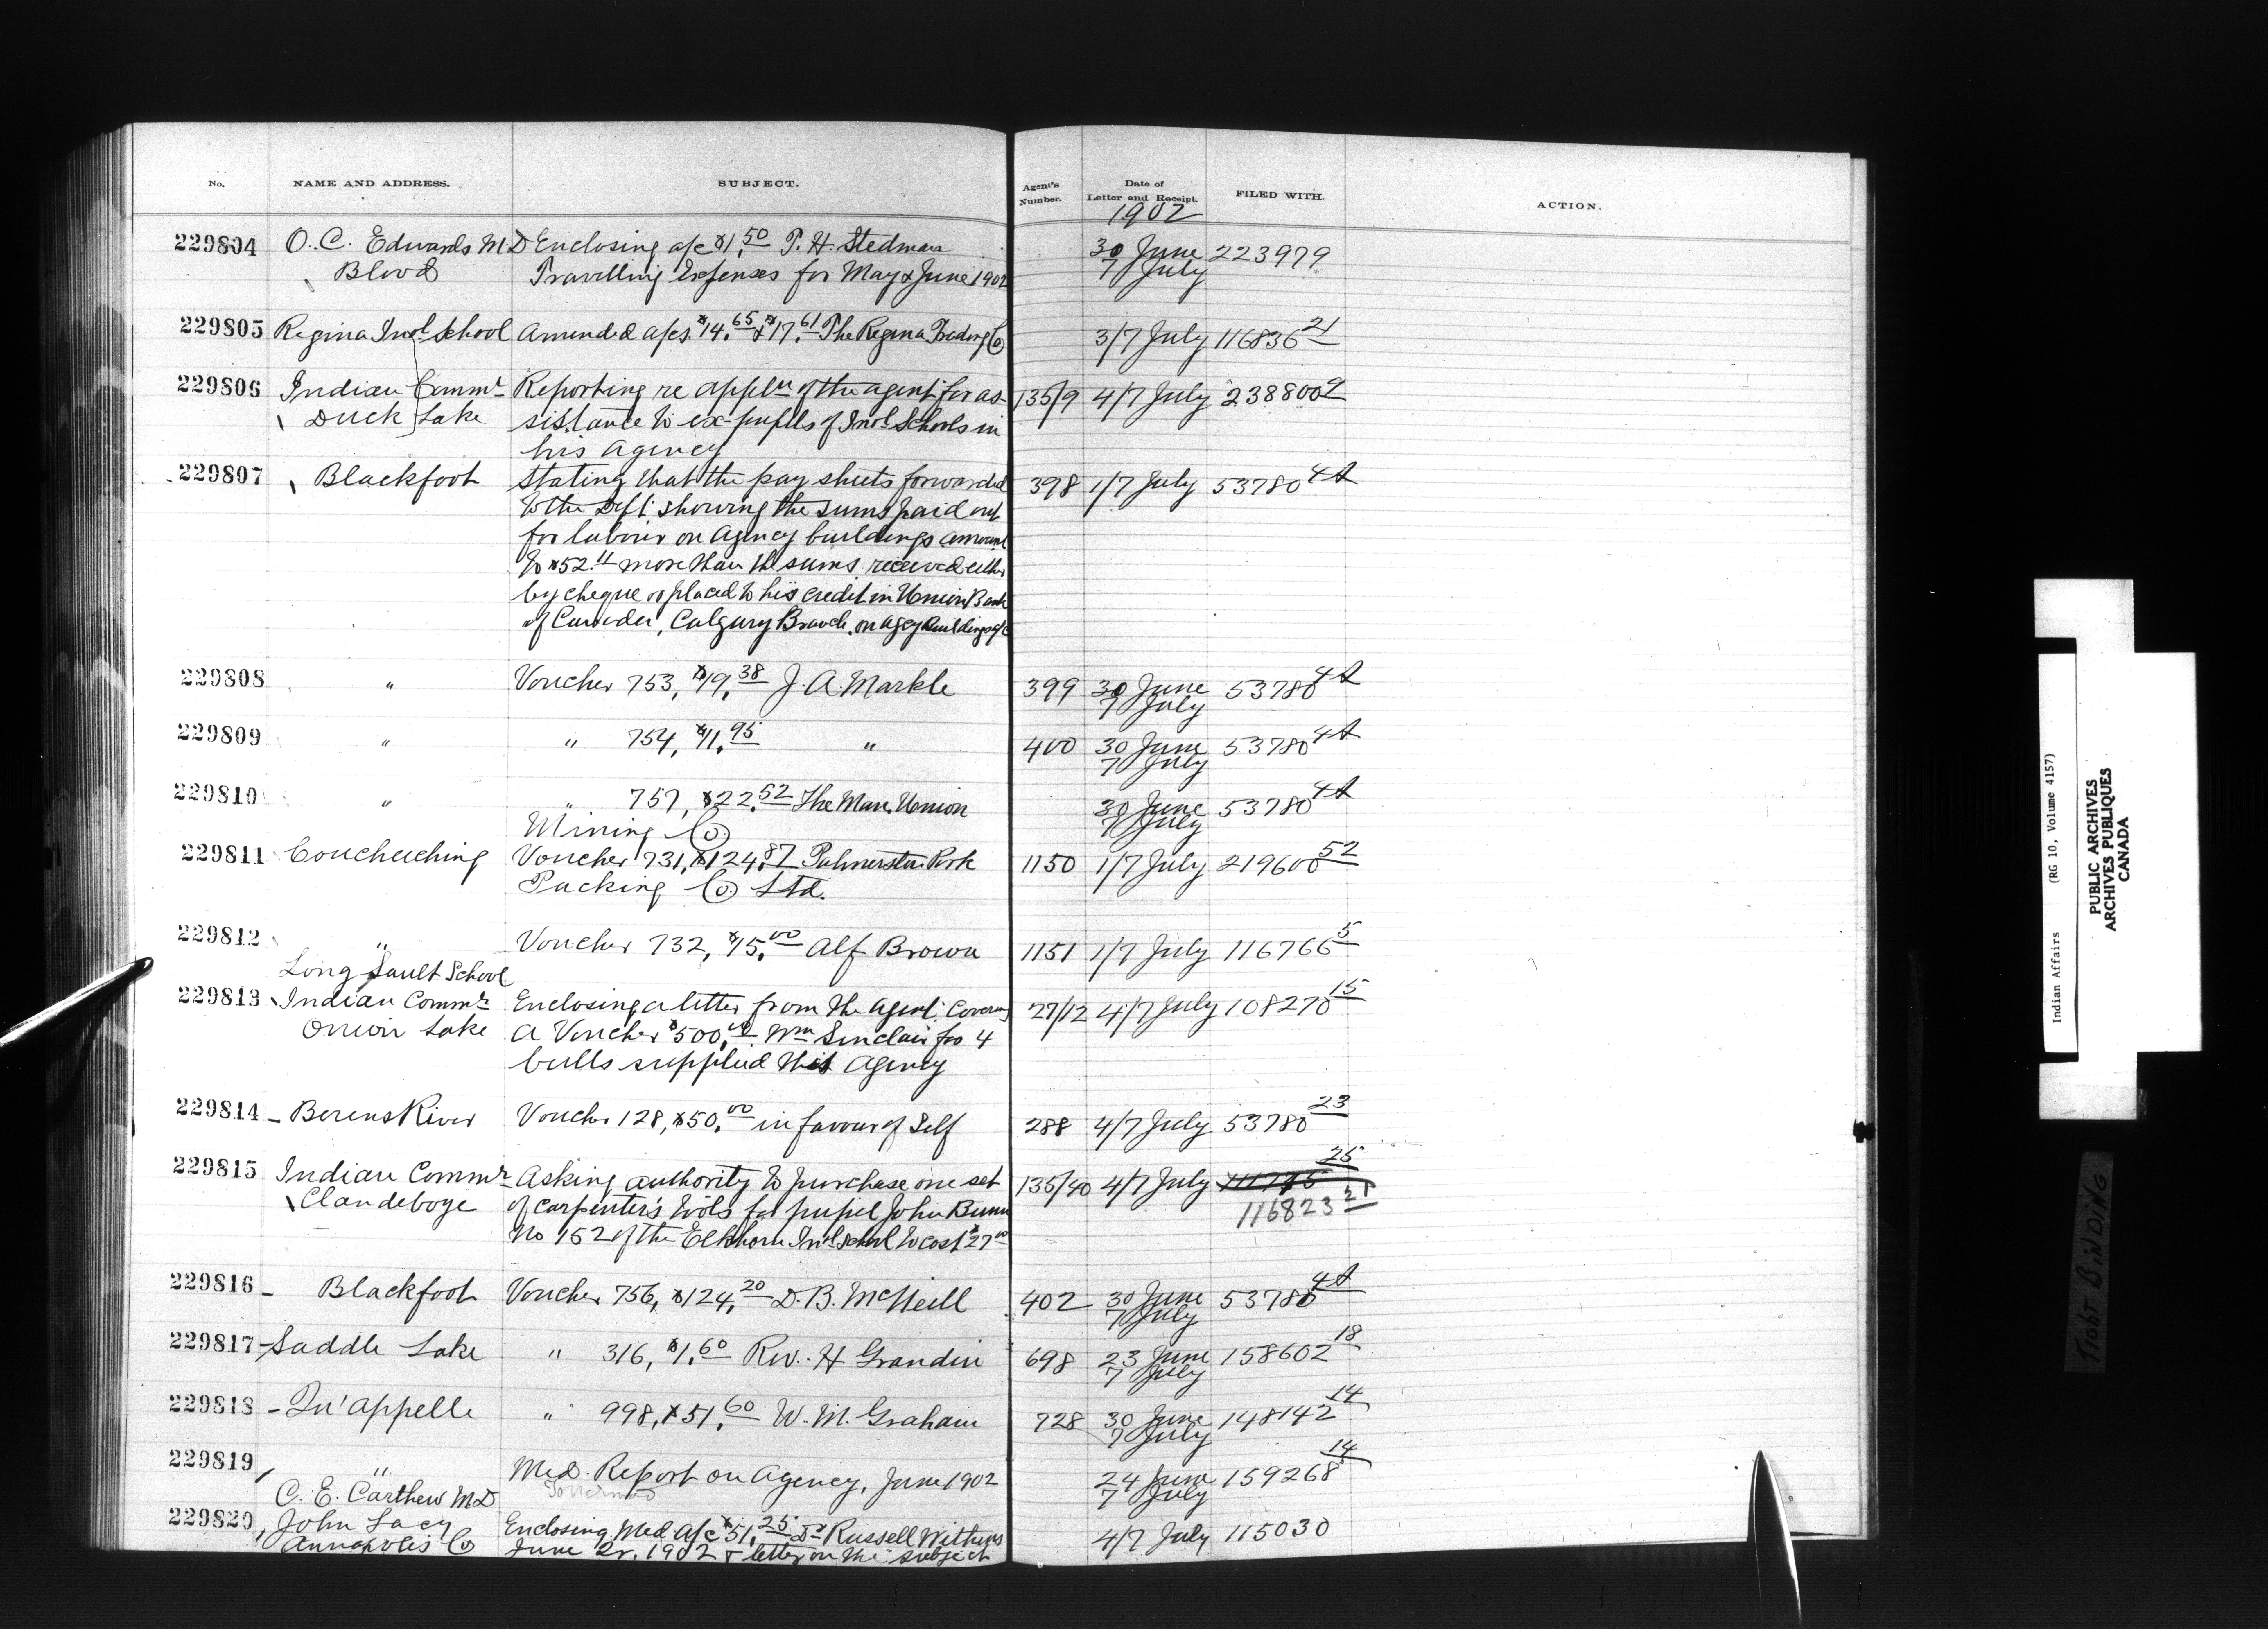 No. NAME AND ADDRESS. SUBJECT. Agent's Number. Date of Letter and Receipt. FILED WITH. ACTION.
1902
229804 O. C. Edwards M.D Enclosing a/c $1.50 P. H. Stedman 30 June 223979
Blood Travelling Expenses for May & June 1902 7 July
229805 Regina Ind. School Amended a/cs. $14.65 & $17.61 The Regina Trading Co 3/7 July 116836 21
229806 Indian Commr Reporting re appln of the agent for as- 135/9 4/7 July 238800 9
Duck Lake sistance to ex-pupils of Indl Schools in
his agency
229807 Blackfoot Stating that the pay sheets forwarded 398 1/7 July 53780 4A
to the Dept showing the sums paid out
for labour on agency buildings amount
to $52.11 more than the sums received either
by cheque or placed to his credit in Union Bank
of Canada, Calgary Branch, on agcy Buildings a/c
229808 " Voucher 753, $19.38 J. A. Markle 399 30 June 53780 4A
7 July
229809 " " 754, $11.95 " 400 30 June 53780 4A
7 July
229810 " " 757, $22.52 The Man. Union 30 June 53780 4A
Mining Co. 7 July
229811 Coucheeching Voucher 731, $124.87 Palmerston Pork 1150 1/7 July 219600 52
Packing Co. Ltd.
229812 " Voucher 732, $15.00 Alf Brown 1151 1/7 July 116766 5
Long Sault School
229813 Indian Commr Enclosing a letter from the Agent covering 27/12 4/7 July 108270 15
Onion Lake a Voucher $500.00 Wm Sinclair for 4
bulls supplied this Agency
229814 Berens River Voucher 128, $50.00 in favour of Self 288 4/7 July 53780 23
229815 Indian Commr Asking authority to purchase one set 135/40 4/7 July 25
Clandeboye of carpenter's tools for pupil John Bunn 116823 21
No 152 of the Elkhorn Indl School to cost $27.00
229816 Blackfoot Voucher 756, $124.20 D. B. McNeill 402 30 June 53780 4A
7 July
229817 Saddle Lake " 316, $1.60 Rev. H Grandin 698 23 June 158602 18
7 July
229818 Qu'appelle " 998, $51.60 W. M. Graham 728 30 June 148142 14
7 July
229819 " Med. Report on Agency, June 1902 24 June 159268 14
C. E. Carthew M.D 7 July
229820 John Lacy Enclosing Med. a/c $51.25 Dr Russell Withers 4/7 July 115030
Annapolis Co June Qr. 1902 & letter on the subject
Indian Affairs (RG 10, Volume 4157)
PUBLIC ARCHIVES
ARCHIVES PUBLIQUES
CANADA
TIGHT BINDING